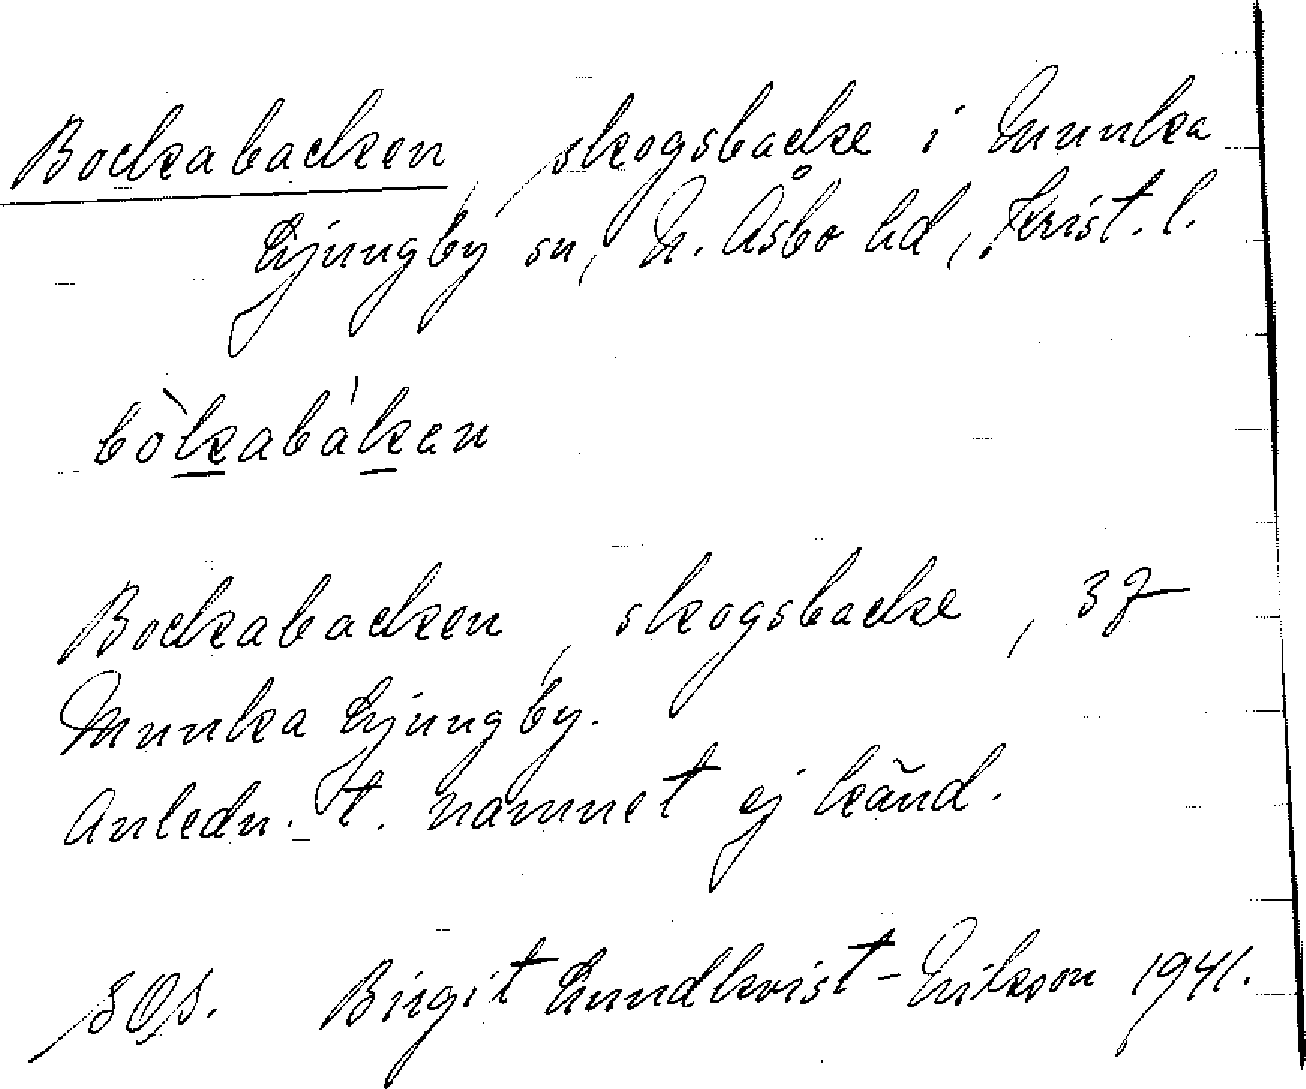 Bockabacken, skogsbacke i Munka
Ljungby sn, N. Åsbo hd, Krist. l.
bòkabàken
Bockabacken, skogsbacke, 37
Munka Ljungby.
Anledn. t. namnet ej känd.
SOS. Birgit Lundkvist-Erikson 1941.